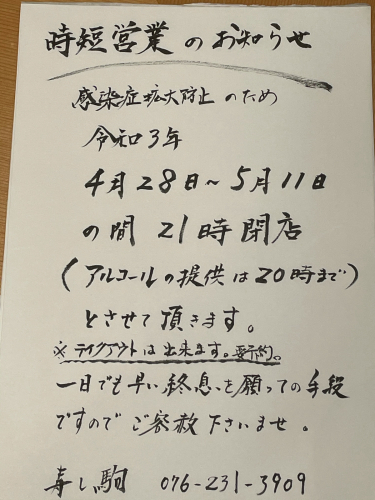 時短営業のお知らせ
感染症拡大防止のため
令和3年
4月28日~5月11日
の間 21時閉店
(アルコールの提供は20時まで)
とさせて頂きます。
※テイクアウトは出来ます。要予約。
一日でも早い終息を願っての手段
ですのでご容赦下さいませ。
寿し駒 076-231-3909